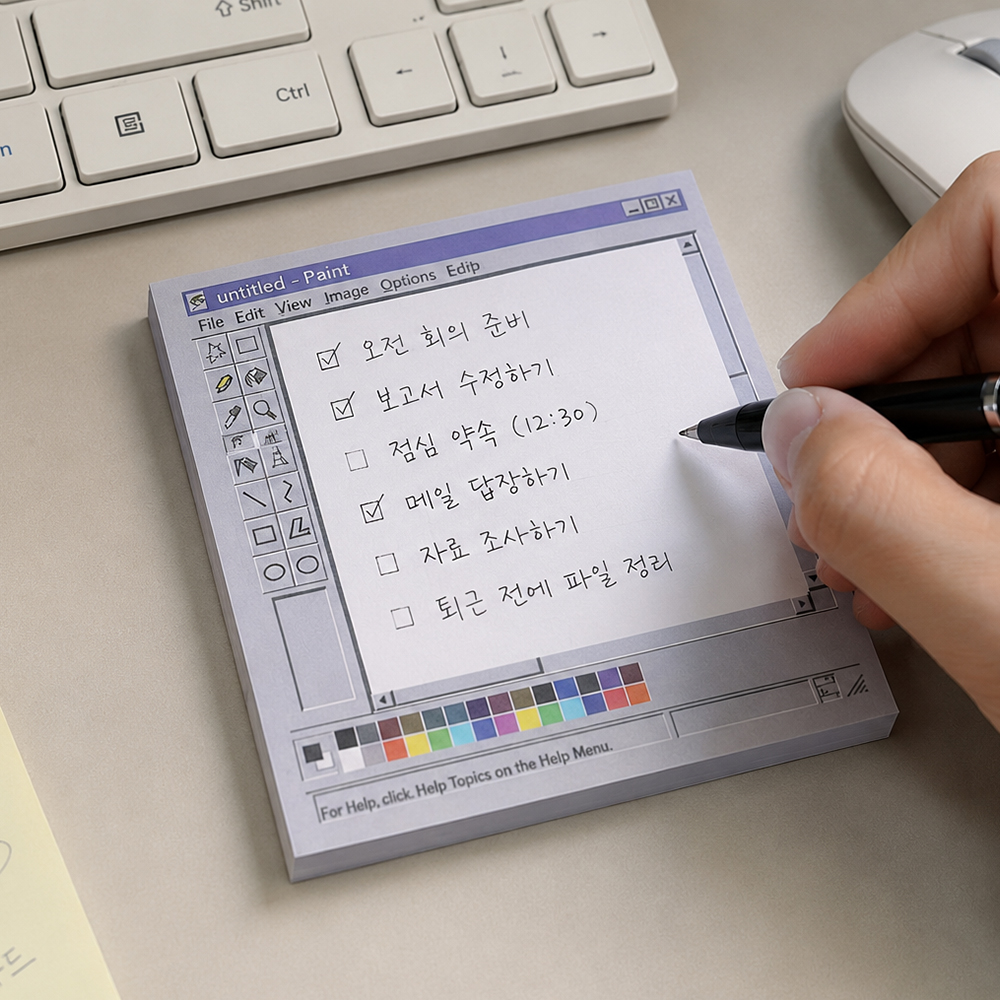 Shift
Ctrl
untitled - Paint
File Edit View Image Options Edip
☑ 오전 회의 준비
☑ 보고서 수정하기
☐ 점심 약속 (12:30)
☑ 메일 답장하기
☐ 자료 조사하기
☐ 퇴근 전에 파일 정리
For Help, click. Help Topics on the Help Menu.